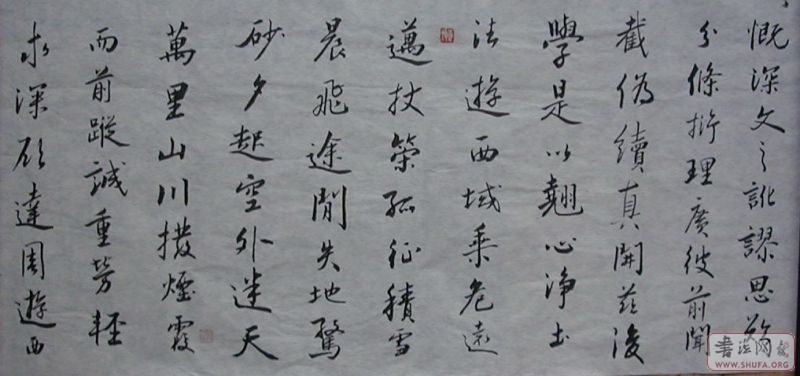 慨深文之訛謬思欲
分條析理廣彼前聞
截偽續真開茲後
學是以翹心淨土
法遊西域乘危遠
邁杖策孤征積雪
晨飛途閒失地驚
砂夕起空外迷天
萬里山川撥煙霞
而前蹤誠重勞輕
求深願達周遊西
WWW.SHUFA.ORG